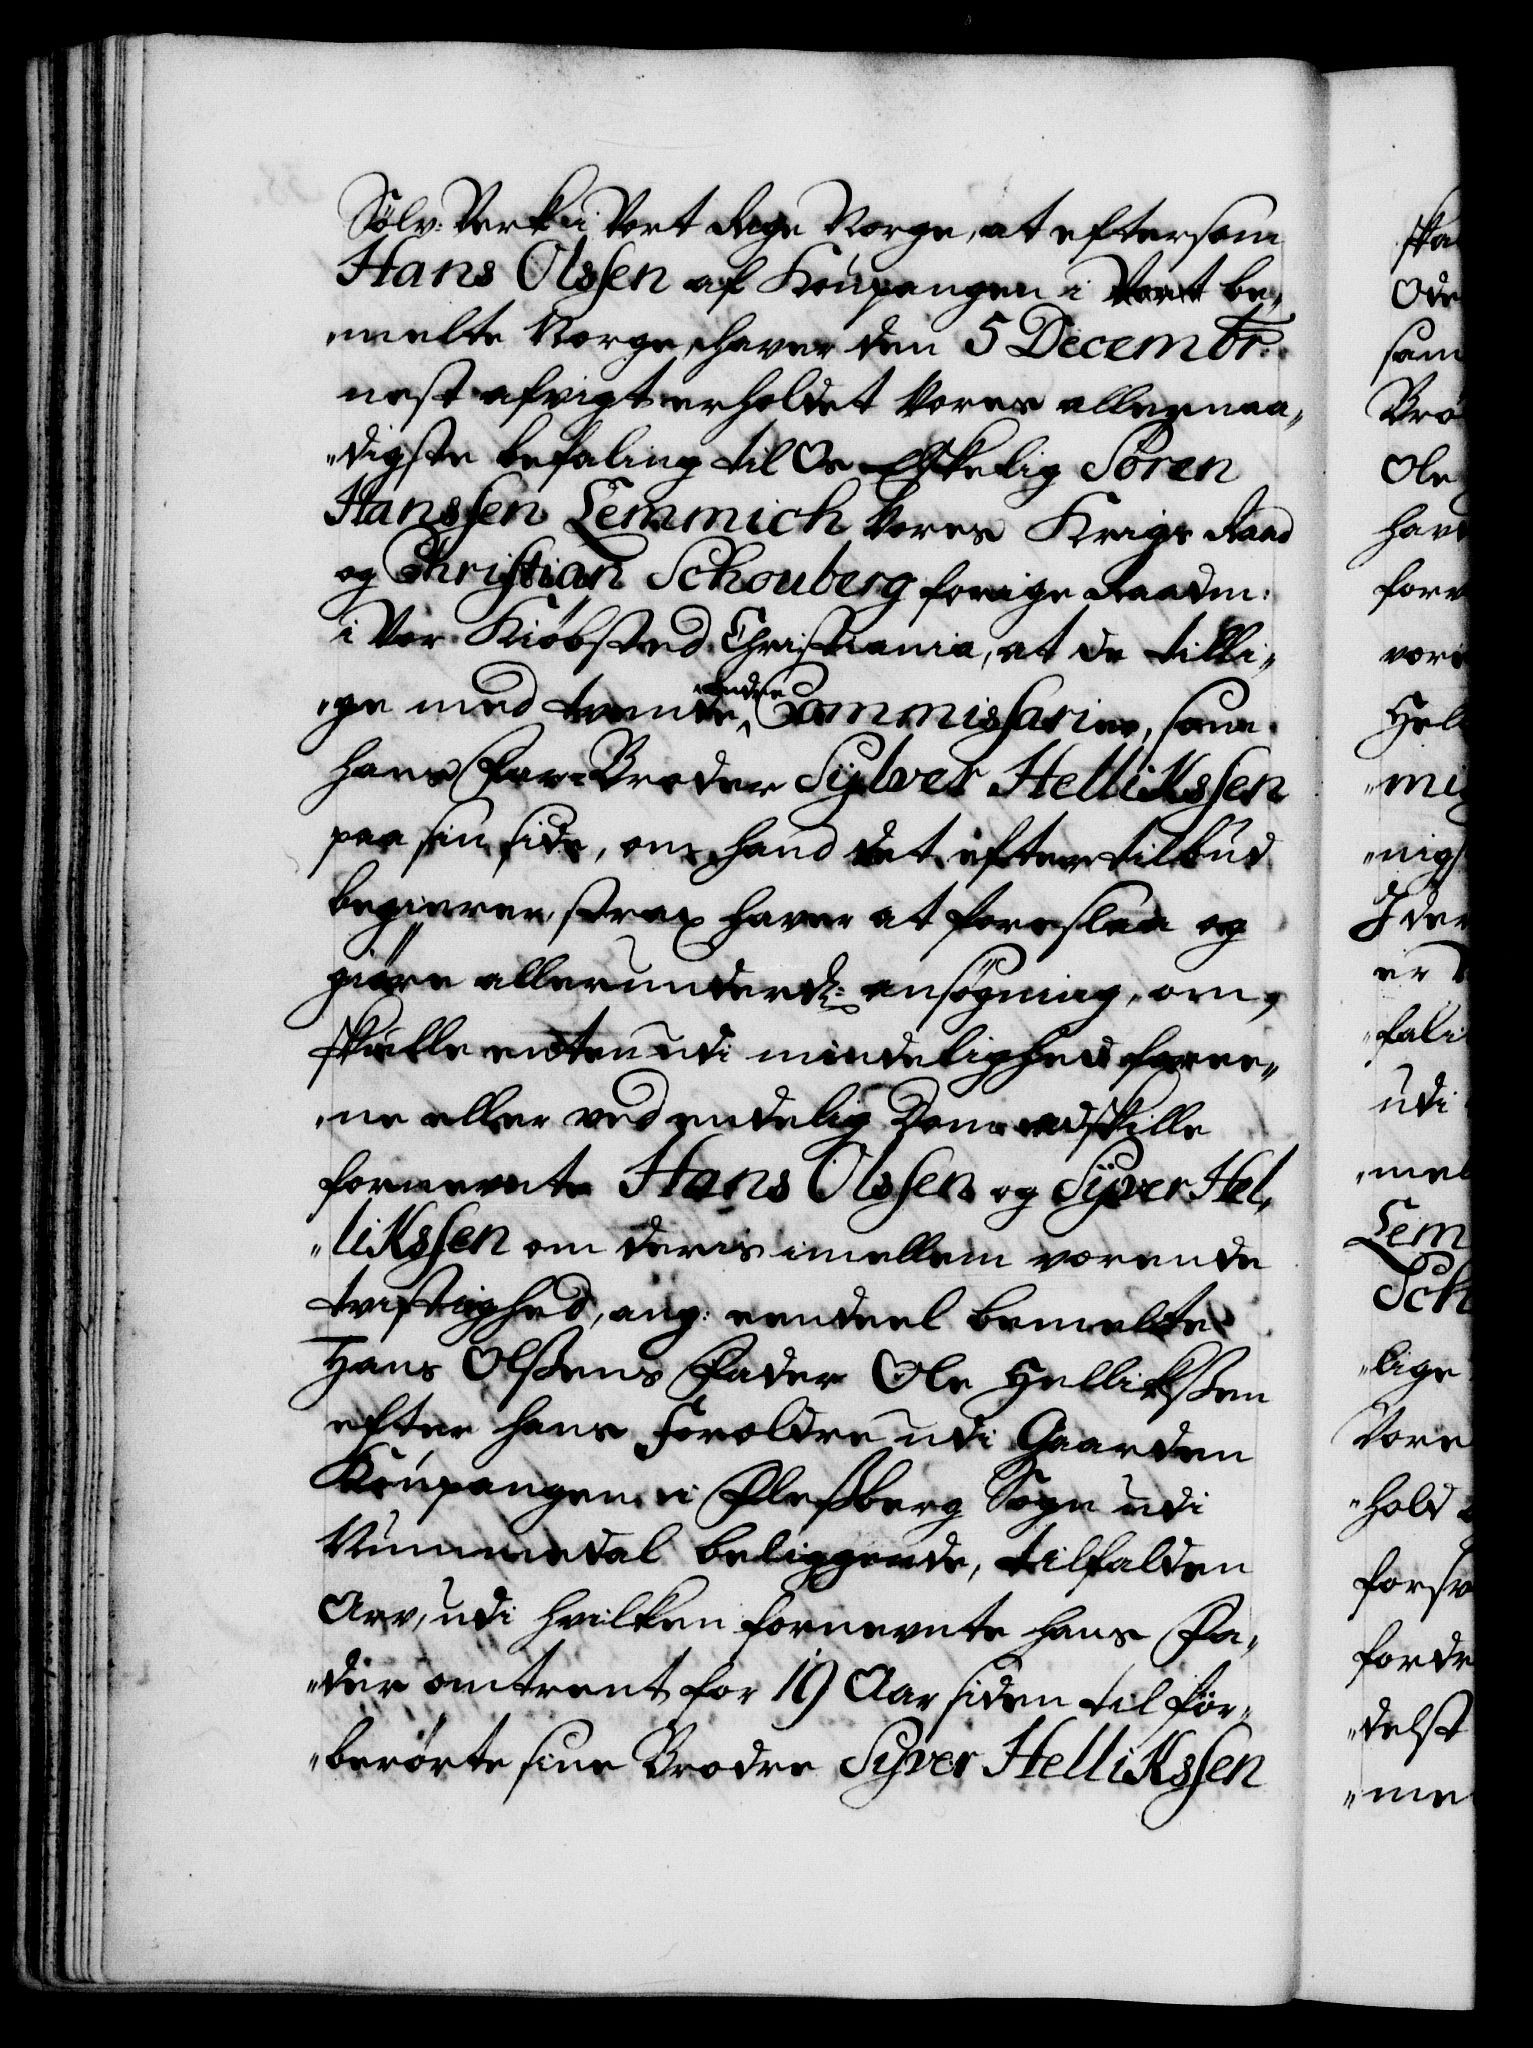 Sølv: Verk i Vort Rige Norge, at eftersom
Hans Olssen af Koupangen i Vort be„
„melte Norge, haver den 5 Decembr:
nest afvigt erholdet Vores allernaa„
„digste befaling til Os Elskelig Sören
Hanssen Lemmich Vores Krigs Raad
og Christian Schouberg forige Raadm:
i Vor Kiøbsted Christiania, at de tilli„
„ge med tvende andre Commissarier, som
hans Far-Broder Sÿlver Hellikssen
paa sin side, om hand det efter tilbud
begierer, strax haver at foreslaa og
giøre allerunderd: ansøgning, om,
skulle enten udi mindelighed foree„
„ne eller ved endelig Dom adskille
fornevnte Hans Olssen og Sÿver Hel„
„likssen om deris imellem verende
tvistighed, ang: eendeel bemelte
Hans Olssens Fader Ole Hellikssen
efter hans Forældre udi Gaarden
Koupangen i Flesberg Sogn udi
Nummedal beliggende, tilfalden
Arv, udi hvilken fornevnte hans Fa„
„der omtrent for 19 Aar siden til for„
„berørte sine Brodre Sÿver Hellikssen
ska
Ode
sam
Brö
Ole
have
forr
vore
Hel
„mig
„nigs
J der
er
„fali
udi
„mel
Lem
Sch
„lige
Vore
„hold
forsv
fordr
„delst
„me